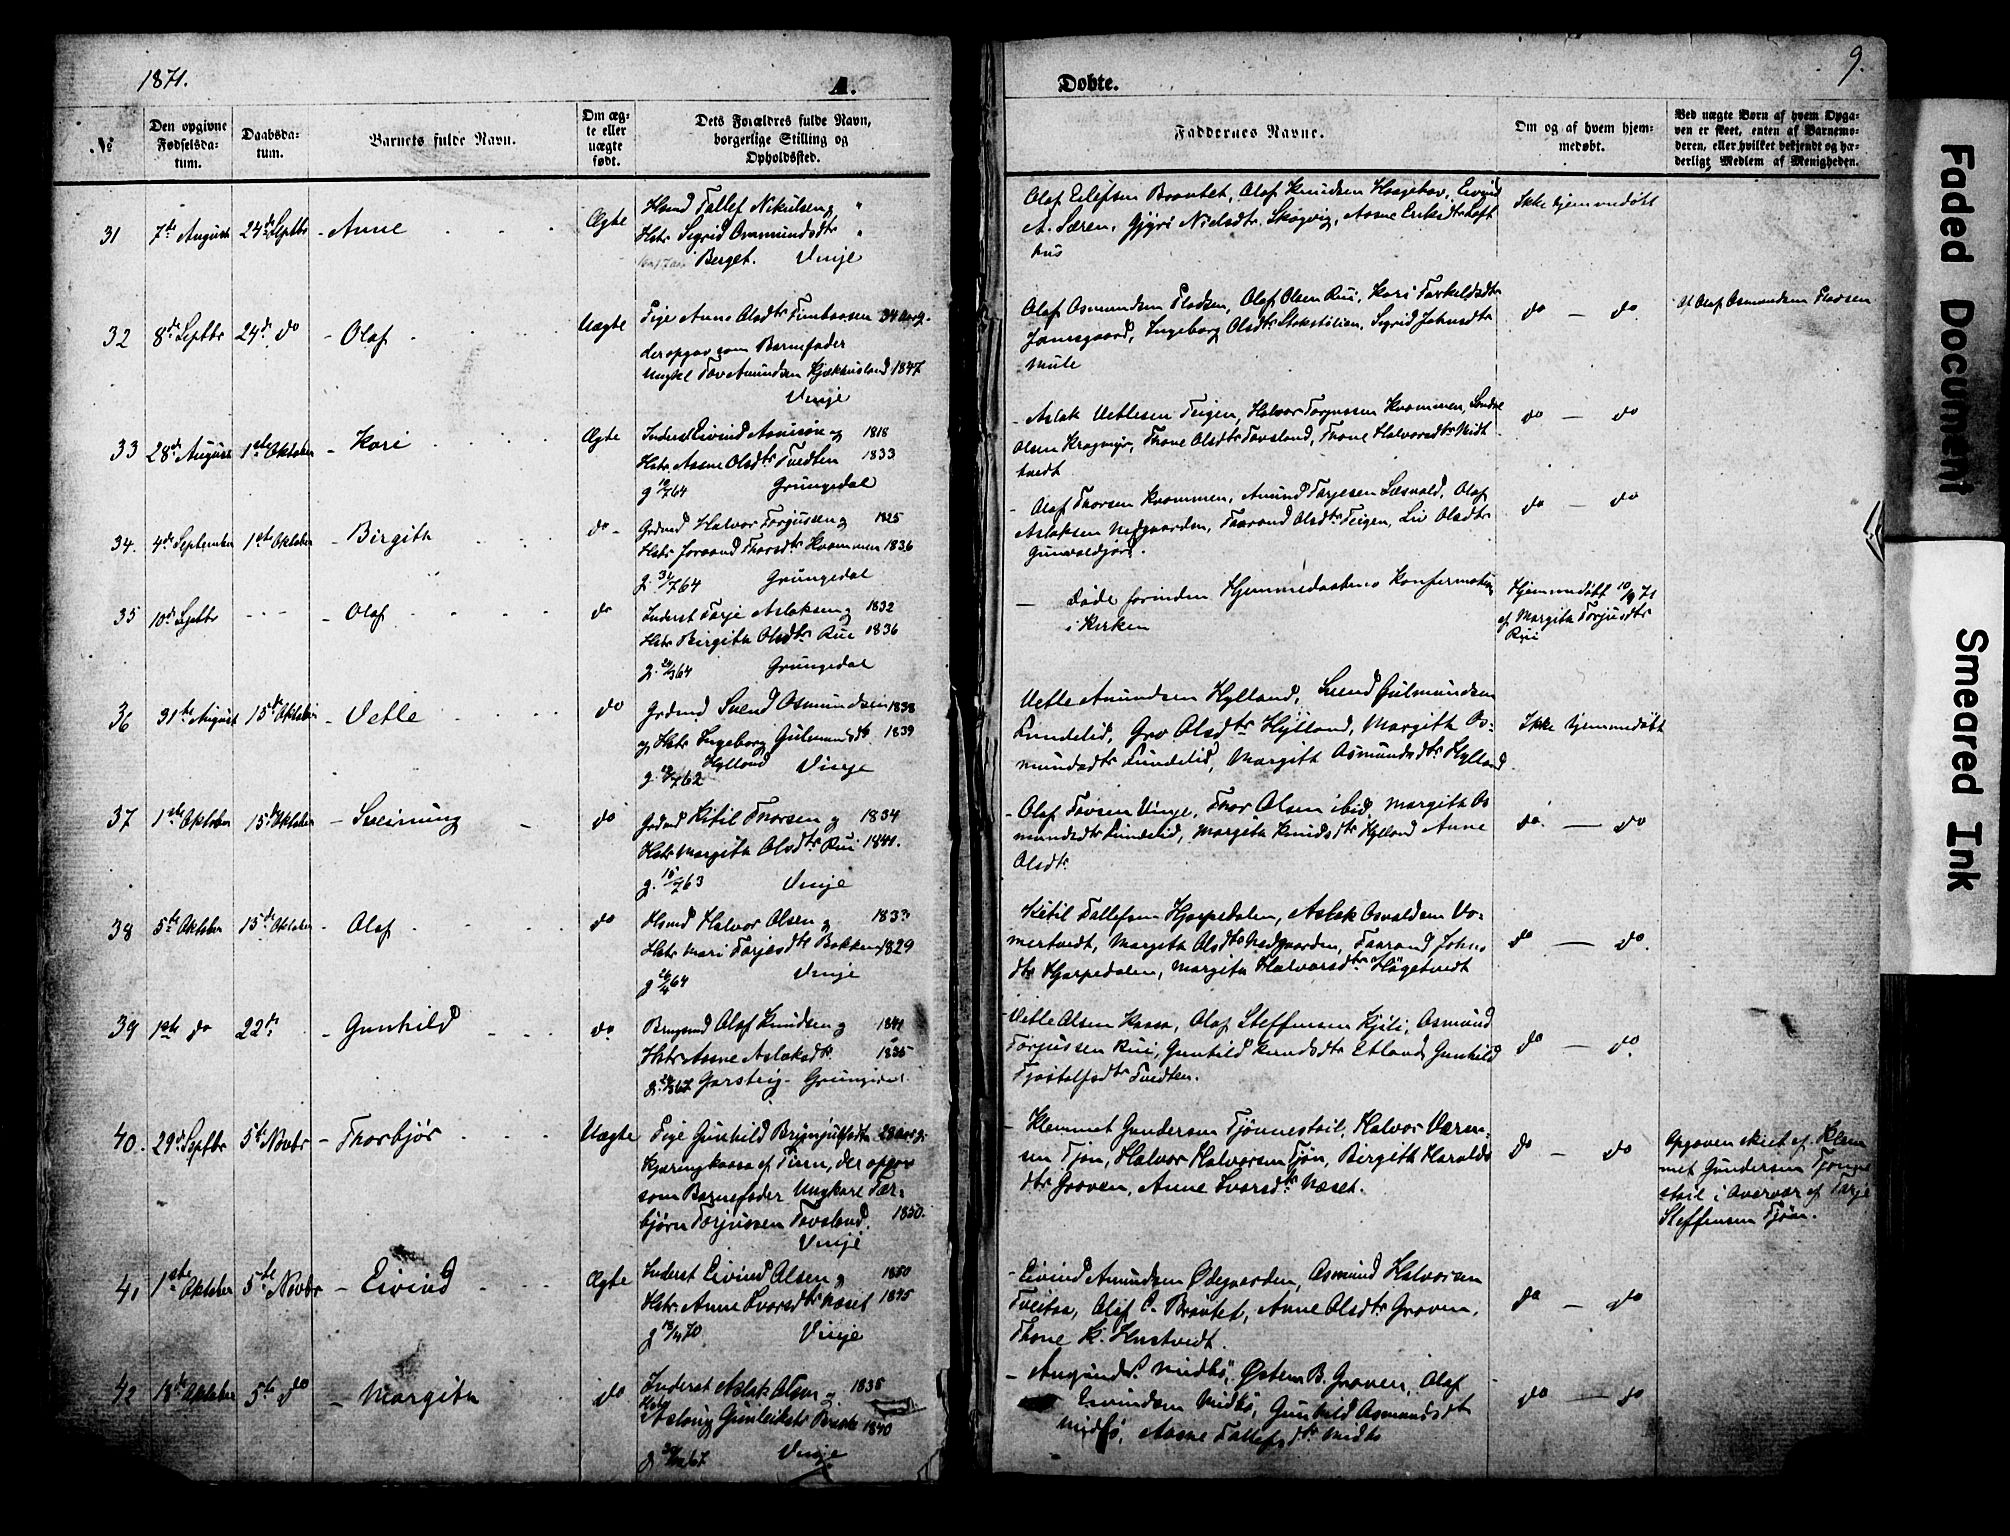 1871.
A.
Døbte.
9.
No
Den opgivne Fødselsdatum.
Daabsdatum.
Barnets fulde Navn.
Om ægte eller uægte født.
Dets Forældres fulde Navn, borgerlige Stilling og Opholdssted.
Faddernes Navne.
Om og af hvem hjemmedøbt.
Ved uægte Børn af hvem Opgaven er skeet, enten af Barnemoderen, eller hvilket bekjendt og hæderligt Medlem af Menigheden.
31 7de August 24de Septbr - Anne Ægte
Hsmd Tallef Nikulsen og
Hstr Sigrid Osmundsdtr
Berget. Vinje
Olaf Eilefsen Brautet, Olaf Knudsen Haagetov, Eivind
A. Særen, Gjyri Nielsdtr Skogvig, Aasne Eriksdtr Loft
hus
Ikke hjemmedøbt
32 8de Septbr 24de do - Olaf Uægte
Pige Anne Olsdtr 34 Aar g.
der opgav som Barnefader
Ungkl Tov Amundsen 1847
Vinje
Olaf Osmundsen Flodsen, Olaf Olsen Rui, Kari Tarkeldsdtr
Ingeborg Olsdtr Stokstølien, Sigrid Johnsdtr
Mule
do - do
Af Olaf Osmundsen Flodsen
33 28de August 1ste Oktober - Kari Ægte
Inderst Eivind og 1818
Hstr Aasne Olsdtr Tvedten 1833
g 64 Grungedal
- Aslak Vetlesen Teigen, Halvor Torjussen Kvammen,
Olsen Thone Olsdtr Tovsland, Thone Halvorsdtr Midt
tvedt
do - do
34. 4de September 1ste Oktober - Birgith do -
Grdmd Halvor Torjussen og 1825
Hstr Joraand Thorsdtr Kvammen 1836
g. 31/7 64 Grungedal
- Olaf Thorsen Kvammen, Amund Tarjesen Olaf
Aslaksen Nedgaarden, Taarand Olsdtr Teigen, Liv Olsdtr
do - do
35 10de Septbr - - - - Olaf do
Inderst Tarje Aslaksen og 1832
Hstr Birgith Olsdtr Rui 1836
g. 64 Grungedal
- Døde forinden Hjemmedaabens Konfirmation
i Kirken
Hjemmedøbt 10/9 71
af Margith Torjusdtr
Rui
36 31te August 15de Oktober - Vetle do
Grdmd Svend Osmundsen 1838
og Hstr Ingeborg Gulmundsdtr 1839
Hylland Vinje
g. 62
Vetle Amundsen Hylland, Svend Gulmundsen
Lundelid, Gro Olsdtr Hylland, Margith Os-
mundsdtr Lundelid, Margith Osmundsdtr Hylland
Ikke hjemmedøbt
37 1ste Oktober 15de Oktober - Sveinung do
Grdmd Kitil Thorsen og 1834
Hstr Margith Olsdtr Rui 1841.
g. 15/7 63 Vinje
- Olaf Tovsen Vinje, Thor Olsen ibid, Margith Os
mundsdtr Lundelid, Margith Knudsdtr Hylland Anne
Olsdtr
do. - do
38 5te Oktober 15de Oktober - Olaf do
Hsmd Halvor Olsen og 1833
Hstr Mari Tarjesdtr Bakken 1829
g 26/4 64 Vinje
Kitil Tallefsen Hjarpedalen, Aslak Osvaldsen Vo-
mertvedt, Margith Olsdtr Nedgaarden, Taarand Johns
dtr Hjarpedalen, Margith Halvorsdtr Høgetvedt
do - do.
39 1ste do 22de - Gunhild do
Brugsmd Olaf Knudsen og 1841
Hstr Aasne Aslaksdtr. 1835
g. 67 Garsteig - Grungedal
- Vetle Olsen Kaasa, Olaf Steffensen Kjili, Osmund
Torjussen Rui, Gunhild Knudsdtr Edland Gunhild
Tjostolfsdtr Tvedten.
do - do.
40. 29de Septbr 5te Novbr - Thorbjør Uægte
Pige Gunhild Brynjulfsdtr 28 Aar g.
af Tinn, der opgav
som Barnefader Ungkarl Tar-
bjørn Torjussen Tovsland. 1850.
Vinje
- Klemmet Gundersen Tjønnestøil, Halvor
sen Tjøn, Halvor Halvorsen Tjøn, Birgith Haralds
dtr Groven, Anne Ivarsdtr Næset.
do - do
Opgaven skeet af Klem
met Gundersen Tjønne
støil i Overvær af Tarje
Steffensen Tjøn.
41 1ste Oktober 5te Novbr - Eivind Ægte
Inderst Eivind Olsen og 1850
Hstr Anne Ivarsdtr Næset 1845
g 18/4 70 Vinje
- Eivind Amundsen Ødegaarden, Osmund Halvorsen
Tveitaa, Olaf O. Brautet, Anne Olsdtr Groven,
Thone K. Hustvedt.
do - do
42 18de Oktober 5te do - Margith do
Inderst Aslak Olsen og 1838
Hstr Aslaug Gunleiksdtr 1840
g. 67 Vinje
- Midbø, Østen B. Groven, Olaf
Eivindsen Midbø, Gunhild Osmundsdtr
Midbø, Aasne Tallefsdtr Midbø
do - do
Faded Document
Smeared Ink